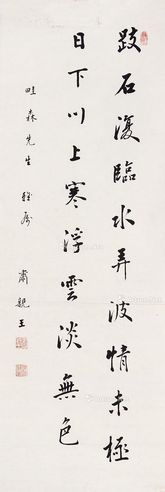 跂石復臨水弄波情未極
日下川上寒浮雲淡無色
畦森先生雅屬
肅親王